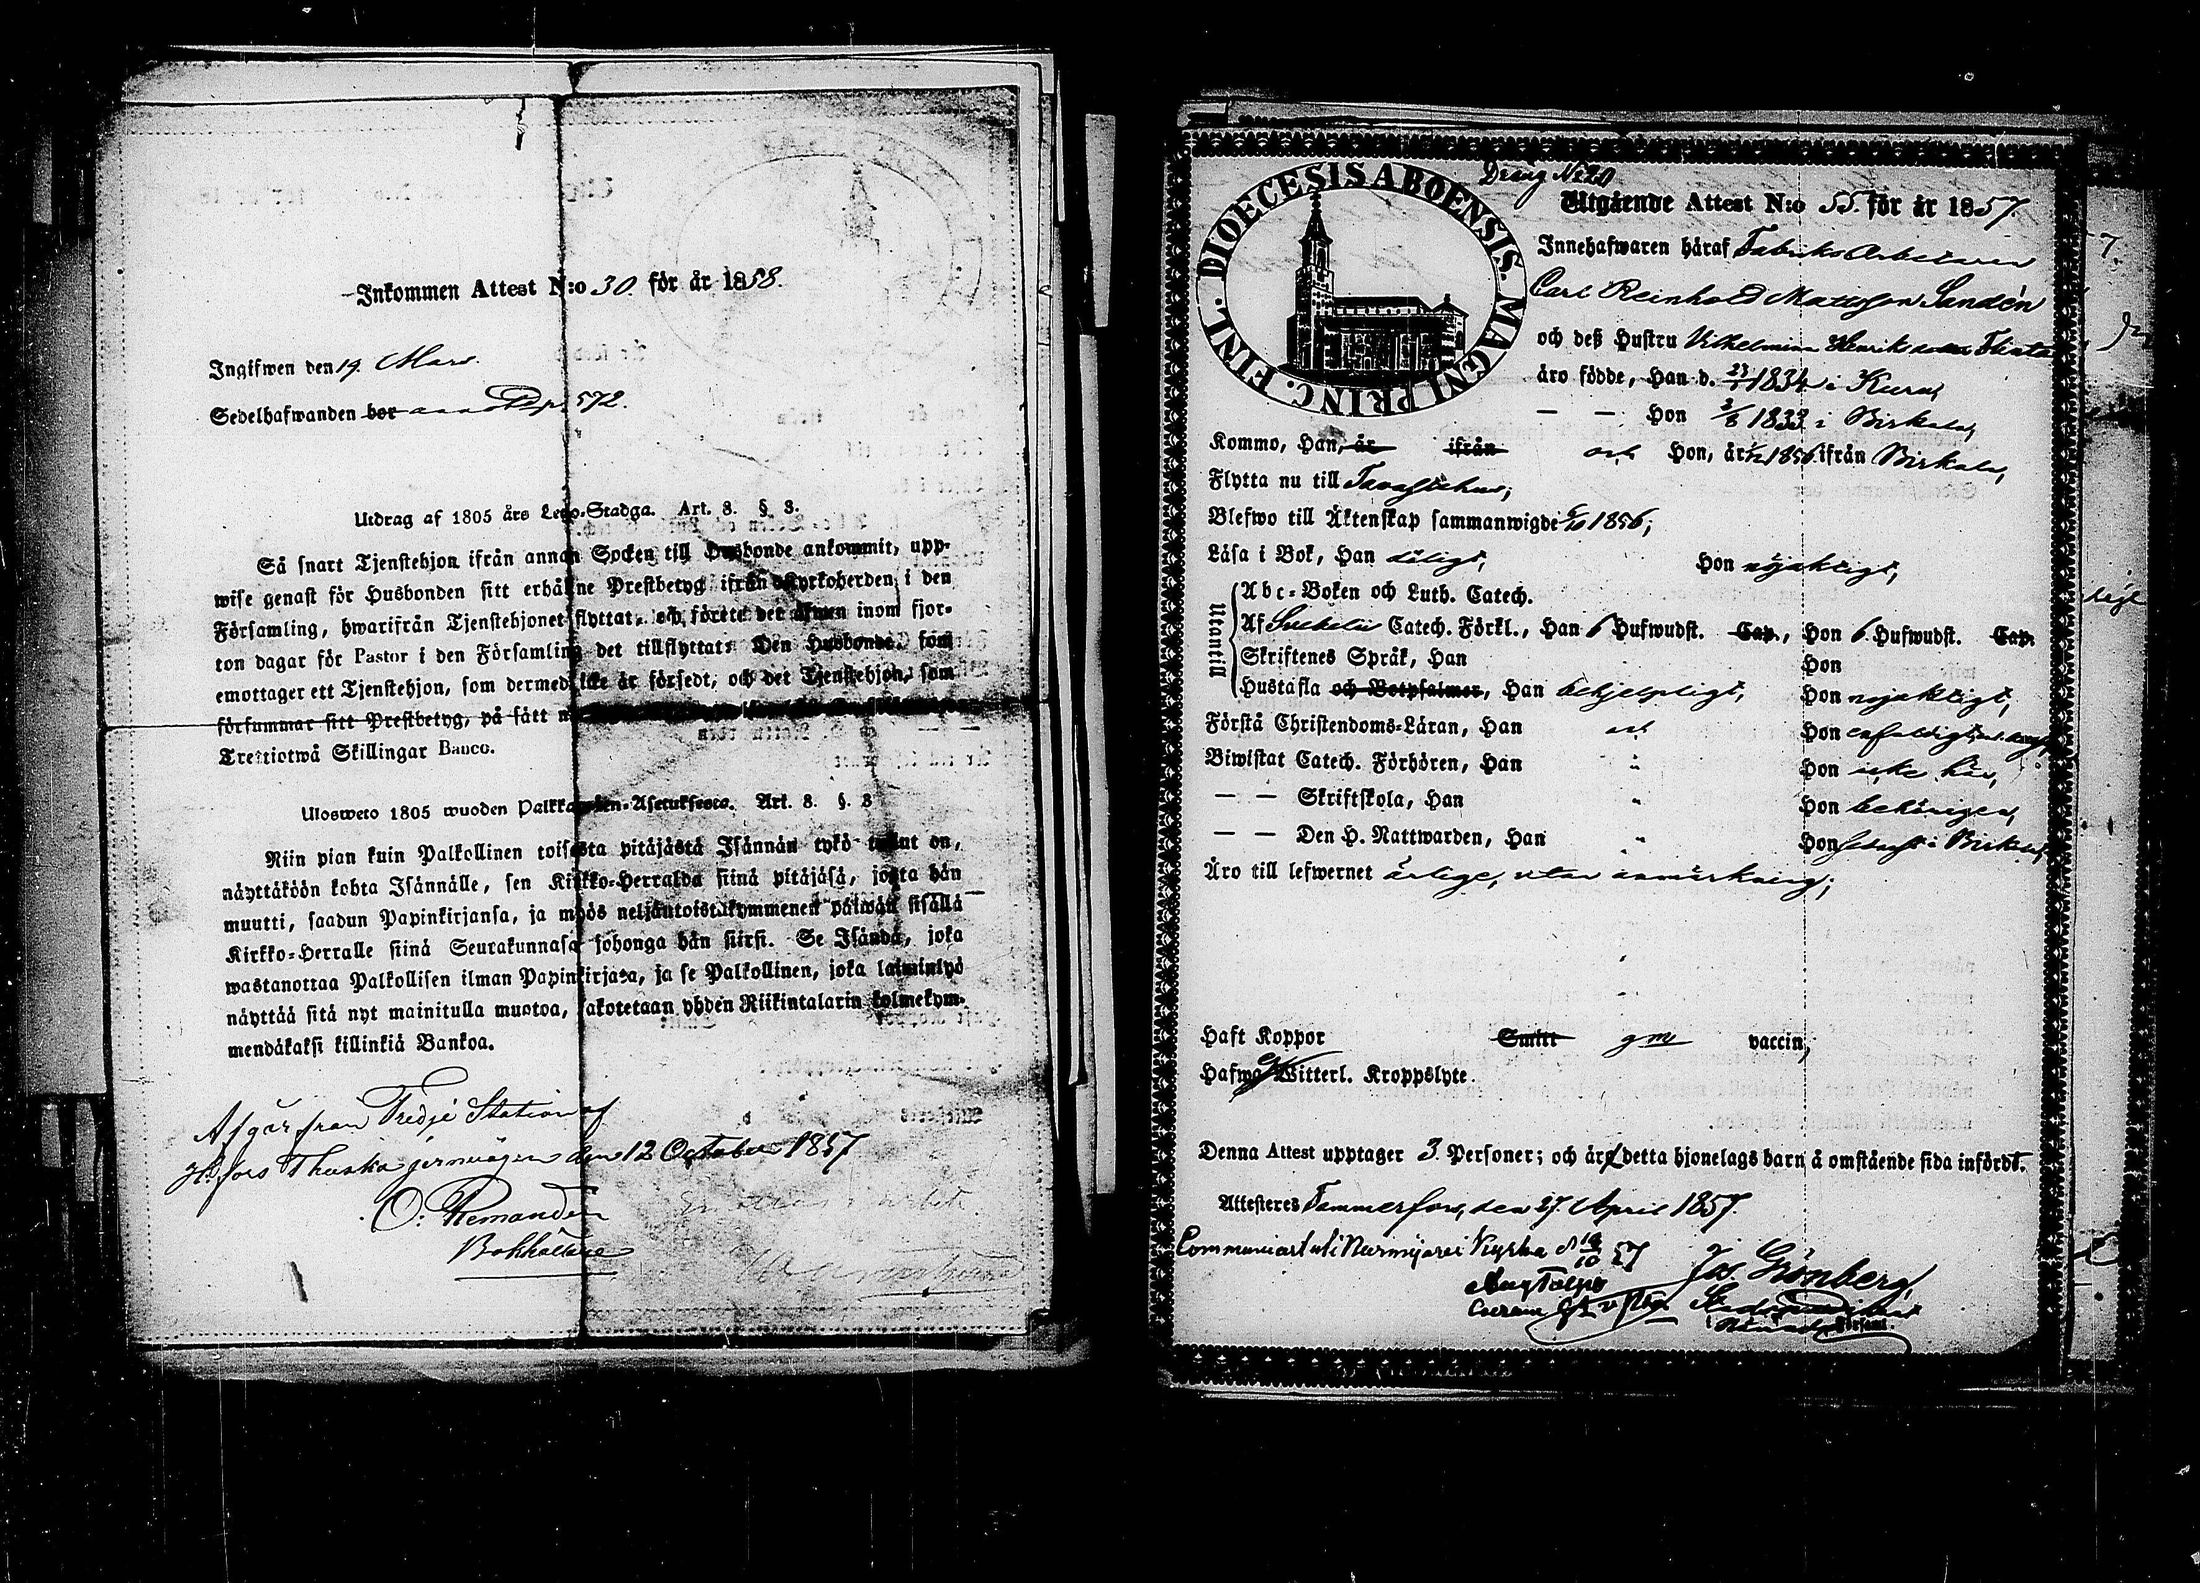 Inkommen Attest N:o 30. för år 1858.
Ingifwen den 19. Mars.
Sedelhafwanden bor p. 572.
Utdrag af 1805 års Lego-Stadga. Art. 8. §. 3.
Så snart Tjenstehjon ifrån annan Socken till Husbonde ankommit, upp-
wise genast för Husbonden sitt erhållne Prestbetyg ifrån Kyrkoherden i den
Församling, hwarifrån Tjenstehjonet flyttat, och förete det äfwen inom fjor-
ton dagar för Pastor i den Församling det tillflyttat. Den Husbonde, som
emottager ett Tjenstehjon, som dermed icke är försedt, och det Tjenstehjon, som
försummar sitt Prestbetyg, på sätt
Trettiotwå Skillingar Banco.
Ulosweto 1805 wuoden Palkkawäen-Asetuksesta. Art. 8. §. 3
Niin pian kuin Palkollinen toisesta pitäjästä Isännän tykö tullut on,
näyttäköön kohta Isännälle, sen Kirkko-Herralda siinä pitäjäsä, josta hän
muutti, saadun Papinkirjansa, ja myös neljäntoistakymmenen päiwän sisällä
Kirkko-Herralle siinä Seurakunnasa johonga hän siirsi. Se Isändä, joka
wastanottaa Palkollisen ilman Papinkirjata, ja se Palkollinen, joka laiminlyö
näyttää sitä nyt mainitulla muotoa, sakotetaan yhden Riikintalarin kolmekym-
mendäkaksi killinkiä Bankoa.
Afgår från Tredje Station af
H:fors Thuska jernvägen den 12 October 1857
O: Remander
Bokhållare
DIOECESIS ABOENSIS. MAGNI PRINC. FINL.
Dräng No 20
Utgående Attest N:o 55. för år 1857.
Innehafwaren häraf Fabriks Arbetaren
Carl Reinhold Mattsson Sandén
och deß Hustru Vilhelmina Henriksdotter
äro födde, Han d. 23/1 1834 i Kuru,
— — Hon 2/8 1833 i Birkala,
Kommo, Han, är ifrån och Hon, är 1856 ifrån Birkala,
Flytta nu till Tavastehus;
Blefwo till Äktenskap sammanwigde 5/10 1856;
Läsa i Bok, Han dåligt, Hon nöjaktigt,
Utantill
Abc-Boken och Luth. Catech.
Af Svebelii Catech. Förkl., Han 6 Hufwudst. Cap., Hon 6 Hufwudst. Cap.
Skriftenes Språk, Han Hon
Hustafla och Botpsalmer, Han behjelpligt, Hon nöjaktigt,
Förstå Christendoms-Läran, Han Hon
Biwistat Catech. Förhören, Han " Hon icke här,
— — Skriftskola, Han " Hon behörigen,
— — Den H. Nattwarden, Han " Hon i Birkala,
Äro till lefwernet ärlige, utan anmärkning;
Haft Koppor Smitt gm vaccin,
Hafwa ej Witterl. Kroppslyte.
Denna Attest upptager 3. Personer; och är detta hjonelags barn å omstående sida infördt.
Attesteras Tammerfors, den 27. April 1857.
Communicerat uti Nurmijärvi Kyrka d 18/10 57
Jos. Grönberg,
i Församl.